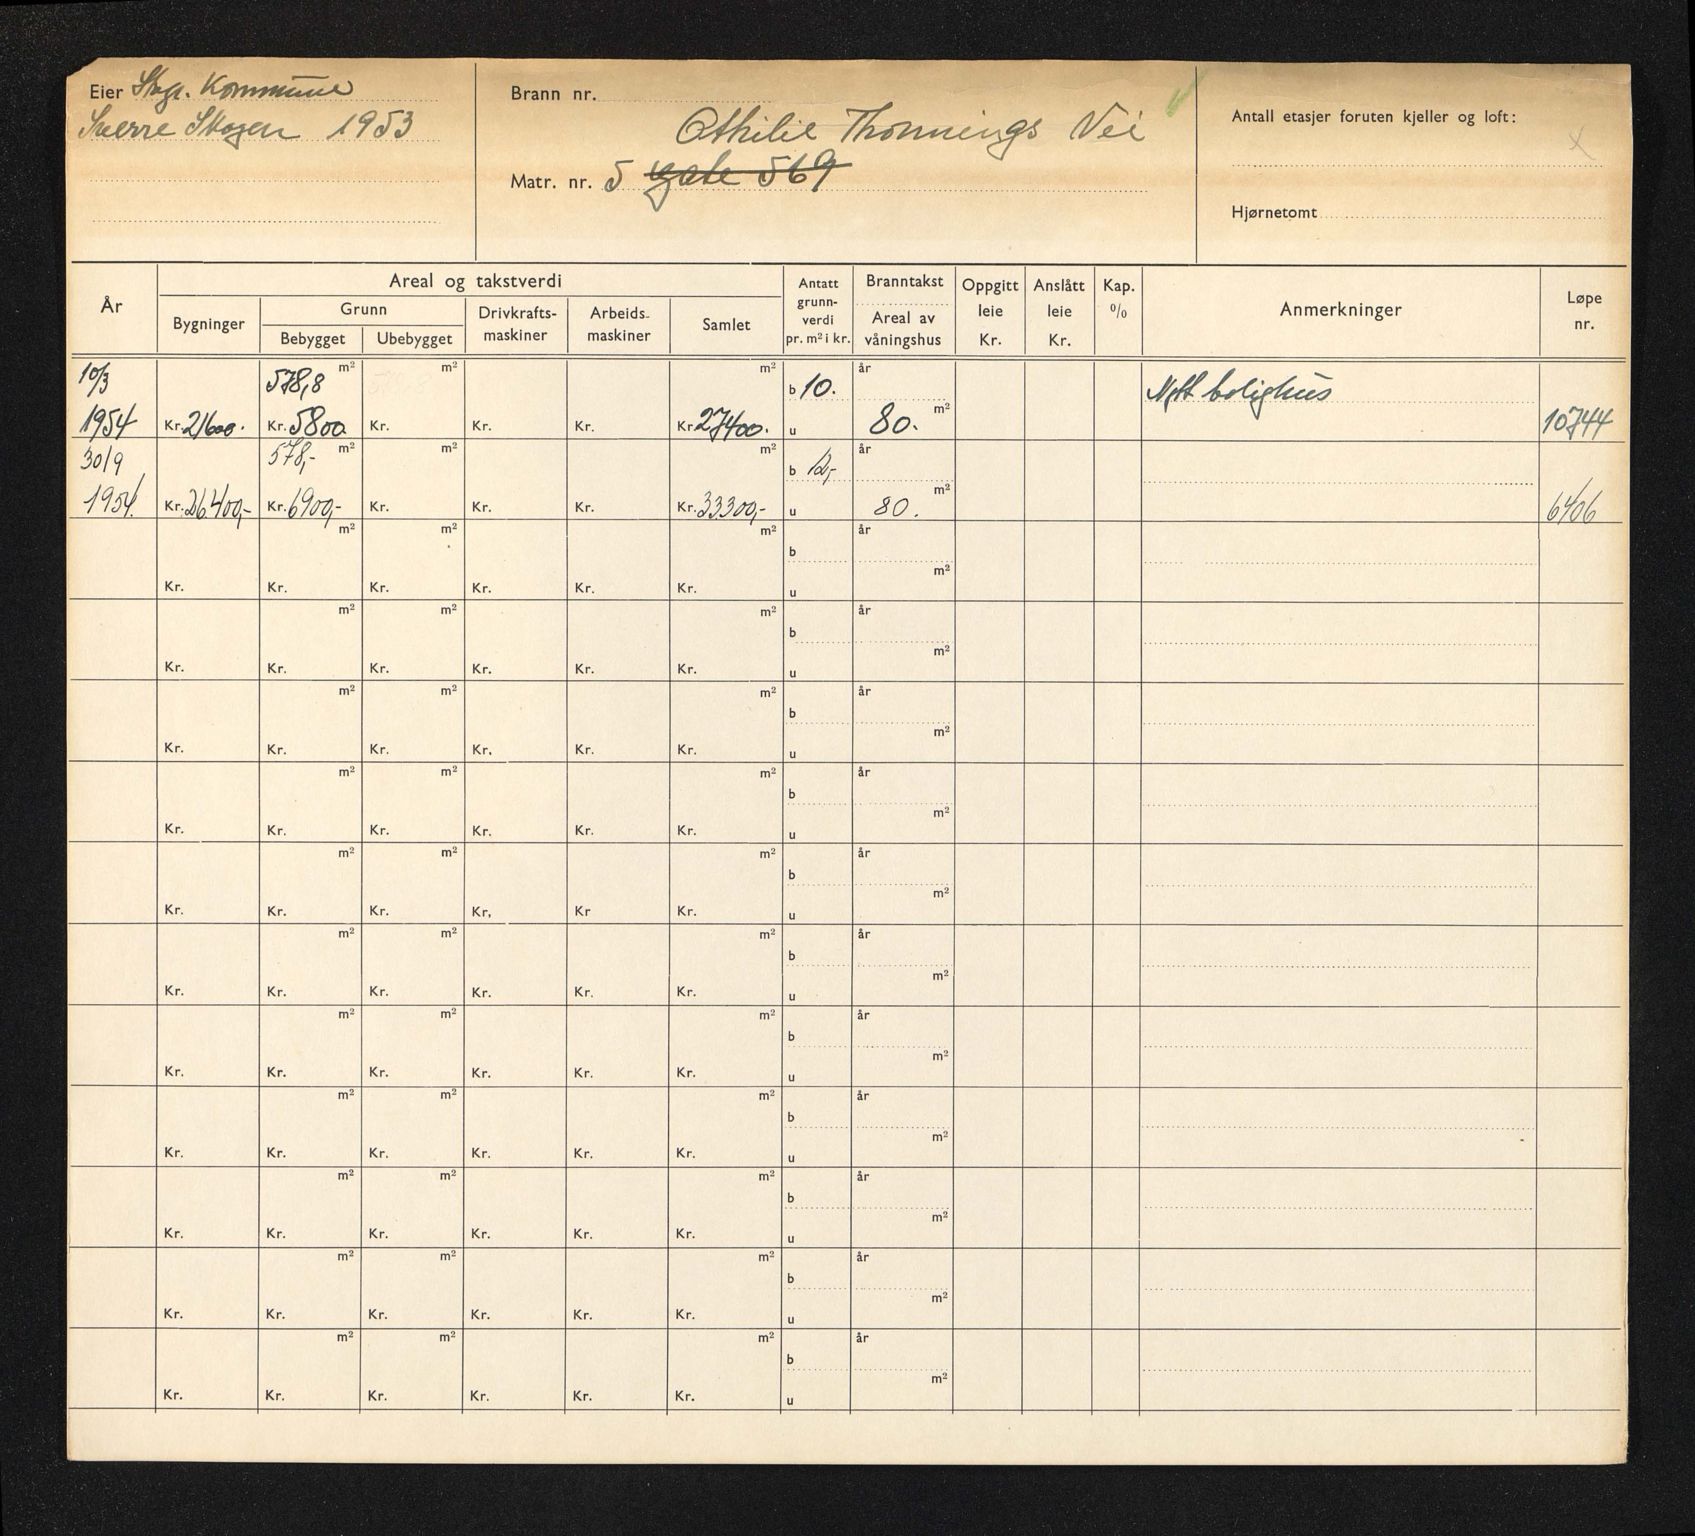 Eier Stvgr. Kommune
Sverre Skogen 1953
Brann nr.
Othilie Thonnings Vei
Matr. nr. 5 gate 569
Antall etasjer foruten kjeller og loft:
Hjørnetomt
År
Areal og takstverdi
Bygninger
Grunn
Bebygget Ubebygget
Drivkrafts-
maskiner
Arbeids-
maskiner
Samlet
Antatt
grunn-
verdi
pr. m² i kr.
Branntakst
Areal av
våningshus
Oppgitt
leie
Kr.
Anslått
leie
Kr.
Kap.
%
Anmerkninger
Løpe
nr.
10/3 578,8 m² m² m² b 10. år Nytt bolighus
1954 Kr. 21600. Kr. 5800. Kr. Kr. Kr. Kr. 27400. u 80. m² 10744
30/9 578,- m² m² m² b 12,- år
1954. Kr. 26.400,- Kr. 6900,- Kr. Kr. Kr. Kr. 33300,- u 80. m² 6406
m² m² m² b år
Kr. Kr. Kr. Kr. Kr. Kr. u m²
m² m² m² b år
Kr. Kr. Kr. Kr. Kr. Kr. u m²
m² m² m² b år
Kr. Kr. Kr. Kr. Kr. Kr. u m²
m² m² m² b år
Kr. Kr. Kr. Kr. Kr. Kr. u m²
m² m² m² b år
Kr. Kr. Kr. Kr. Kr Kr. u m²
m² m² m² b år
Kr. Kr. Kr. Kr. Kr. Kr. u m²
m² m² m² b år
Kr. Kr. Kr. Kr. Kr. Kr. u m²
m² m² m² b år
Kr. Kr. Kr. Kr. Kr. Kr. u m²
m² m² m² b år
Kr. Kr. Kr. Kr. Kr. Kr. u m²
m² m² m² b år
Kr. Kr. Kr. Kr. Kr. Kr. u m²
m² m² m² b år
Kr. Kr. Kr. Kr. Kr. Kr. u m²